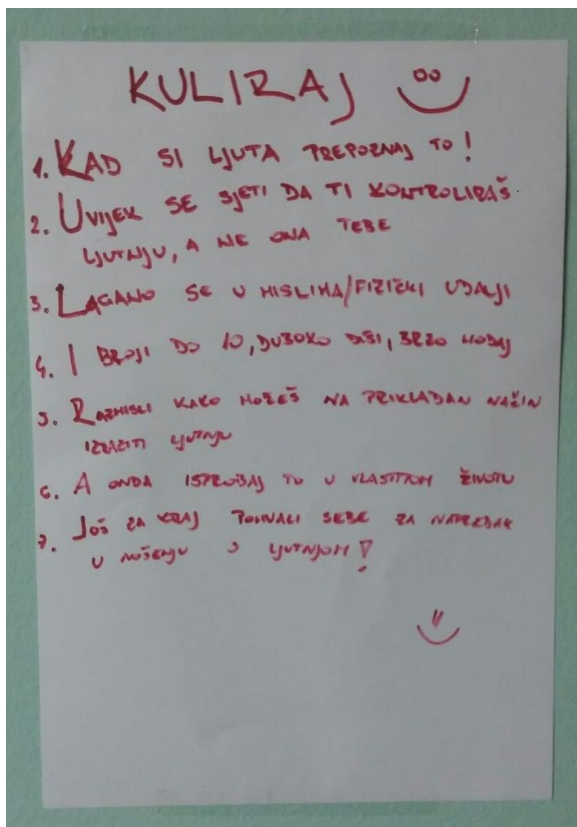 KULIRAJ
1. KAD SI LJUTA PREPOZNAJ TO!
2. UVIJEK SE SJETI DA TI KONTROLIRAŠ
LJUTNJU, A NE ONA TEBE
3. LAGANO SE U MISLIMA/FIZIČKI UDALJI
4. I BROJI DO 10, DUBOKO DIŠI, BRZO HODAJ
5. RAZMISLI KAKO MOŽEŠ NA PRIKLADAN NAČIN
IZRAZITI LJUTNJU
6. A ONDA ISPROBAJ TO U VLASTITOM ŽIVOTU
7. JOŠ ZA KRAJ POHVALI SEBE ZA NAPREDAK
U NOŠENJU S LJUTNJOM!